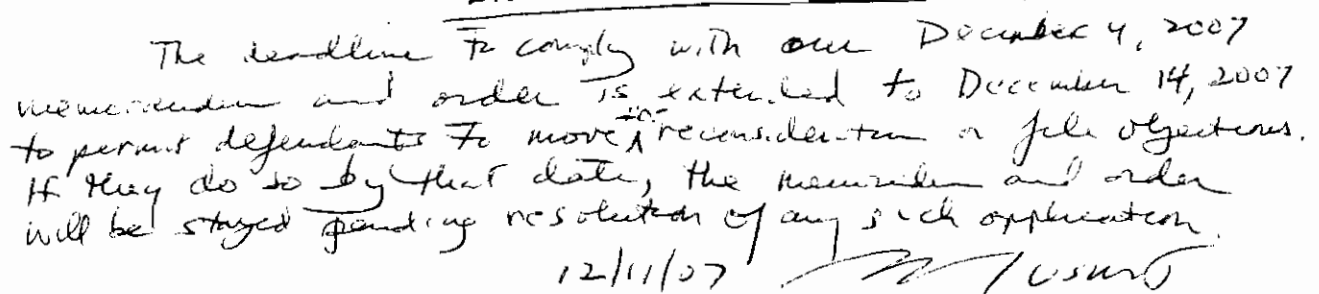 The deadline to comply with our December 4, 2007
memorandum and order is extended to December 14, 2007
to permit defendants to move for reconsideration or file objections.
If they do so by that date, the memorandum and order
will be stayed pending resolution of any such application.
12/11/07 USMJ